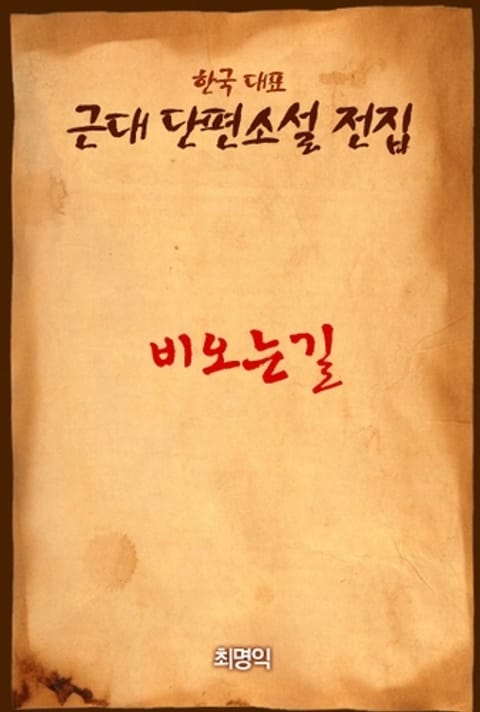 한국 대표
근대 단편소설 전집
비오는길
최명익